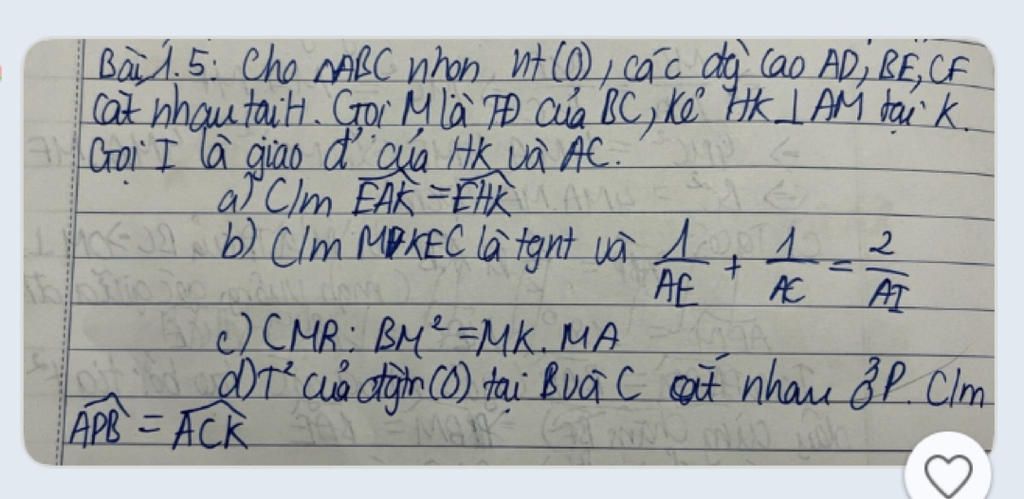 Bài 1.5: Cho ΔABC nhọn nt (O), các đg` cao AD, BE, CF
cắt nhau tại H. Gọi M là TĐ của BC, kẻ HK ⊥ AM tại K.
Gọi I là giao đ' của HK và AC.
a) C/m \widehat{EAK} = \widehat{EHK}
b) C/m MKEC là tgnt và \frac{1}{AE} + \frac{1}{AC} = \frac{2}{AI}
c) CMR: BM² = MK. MA
d) T² của đgtr (O) tại B và C cắt nhau ở P. C/m
\widehat{APB} = \widehat{ACK}